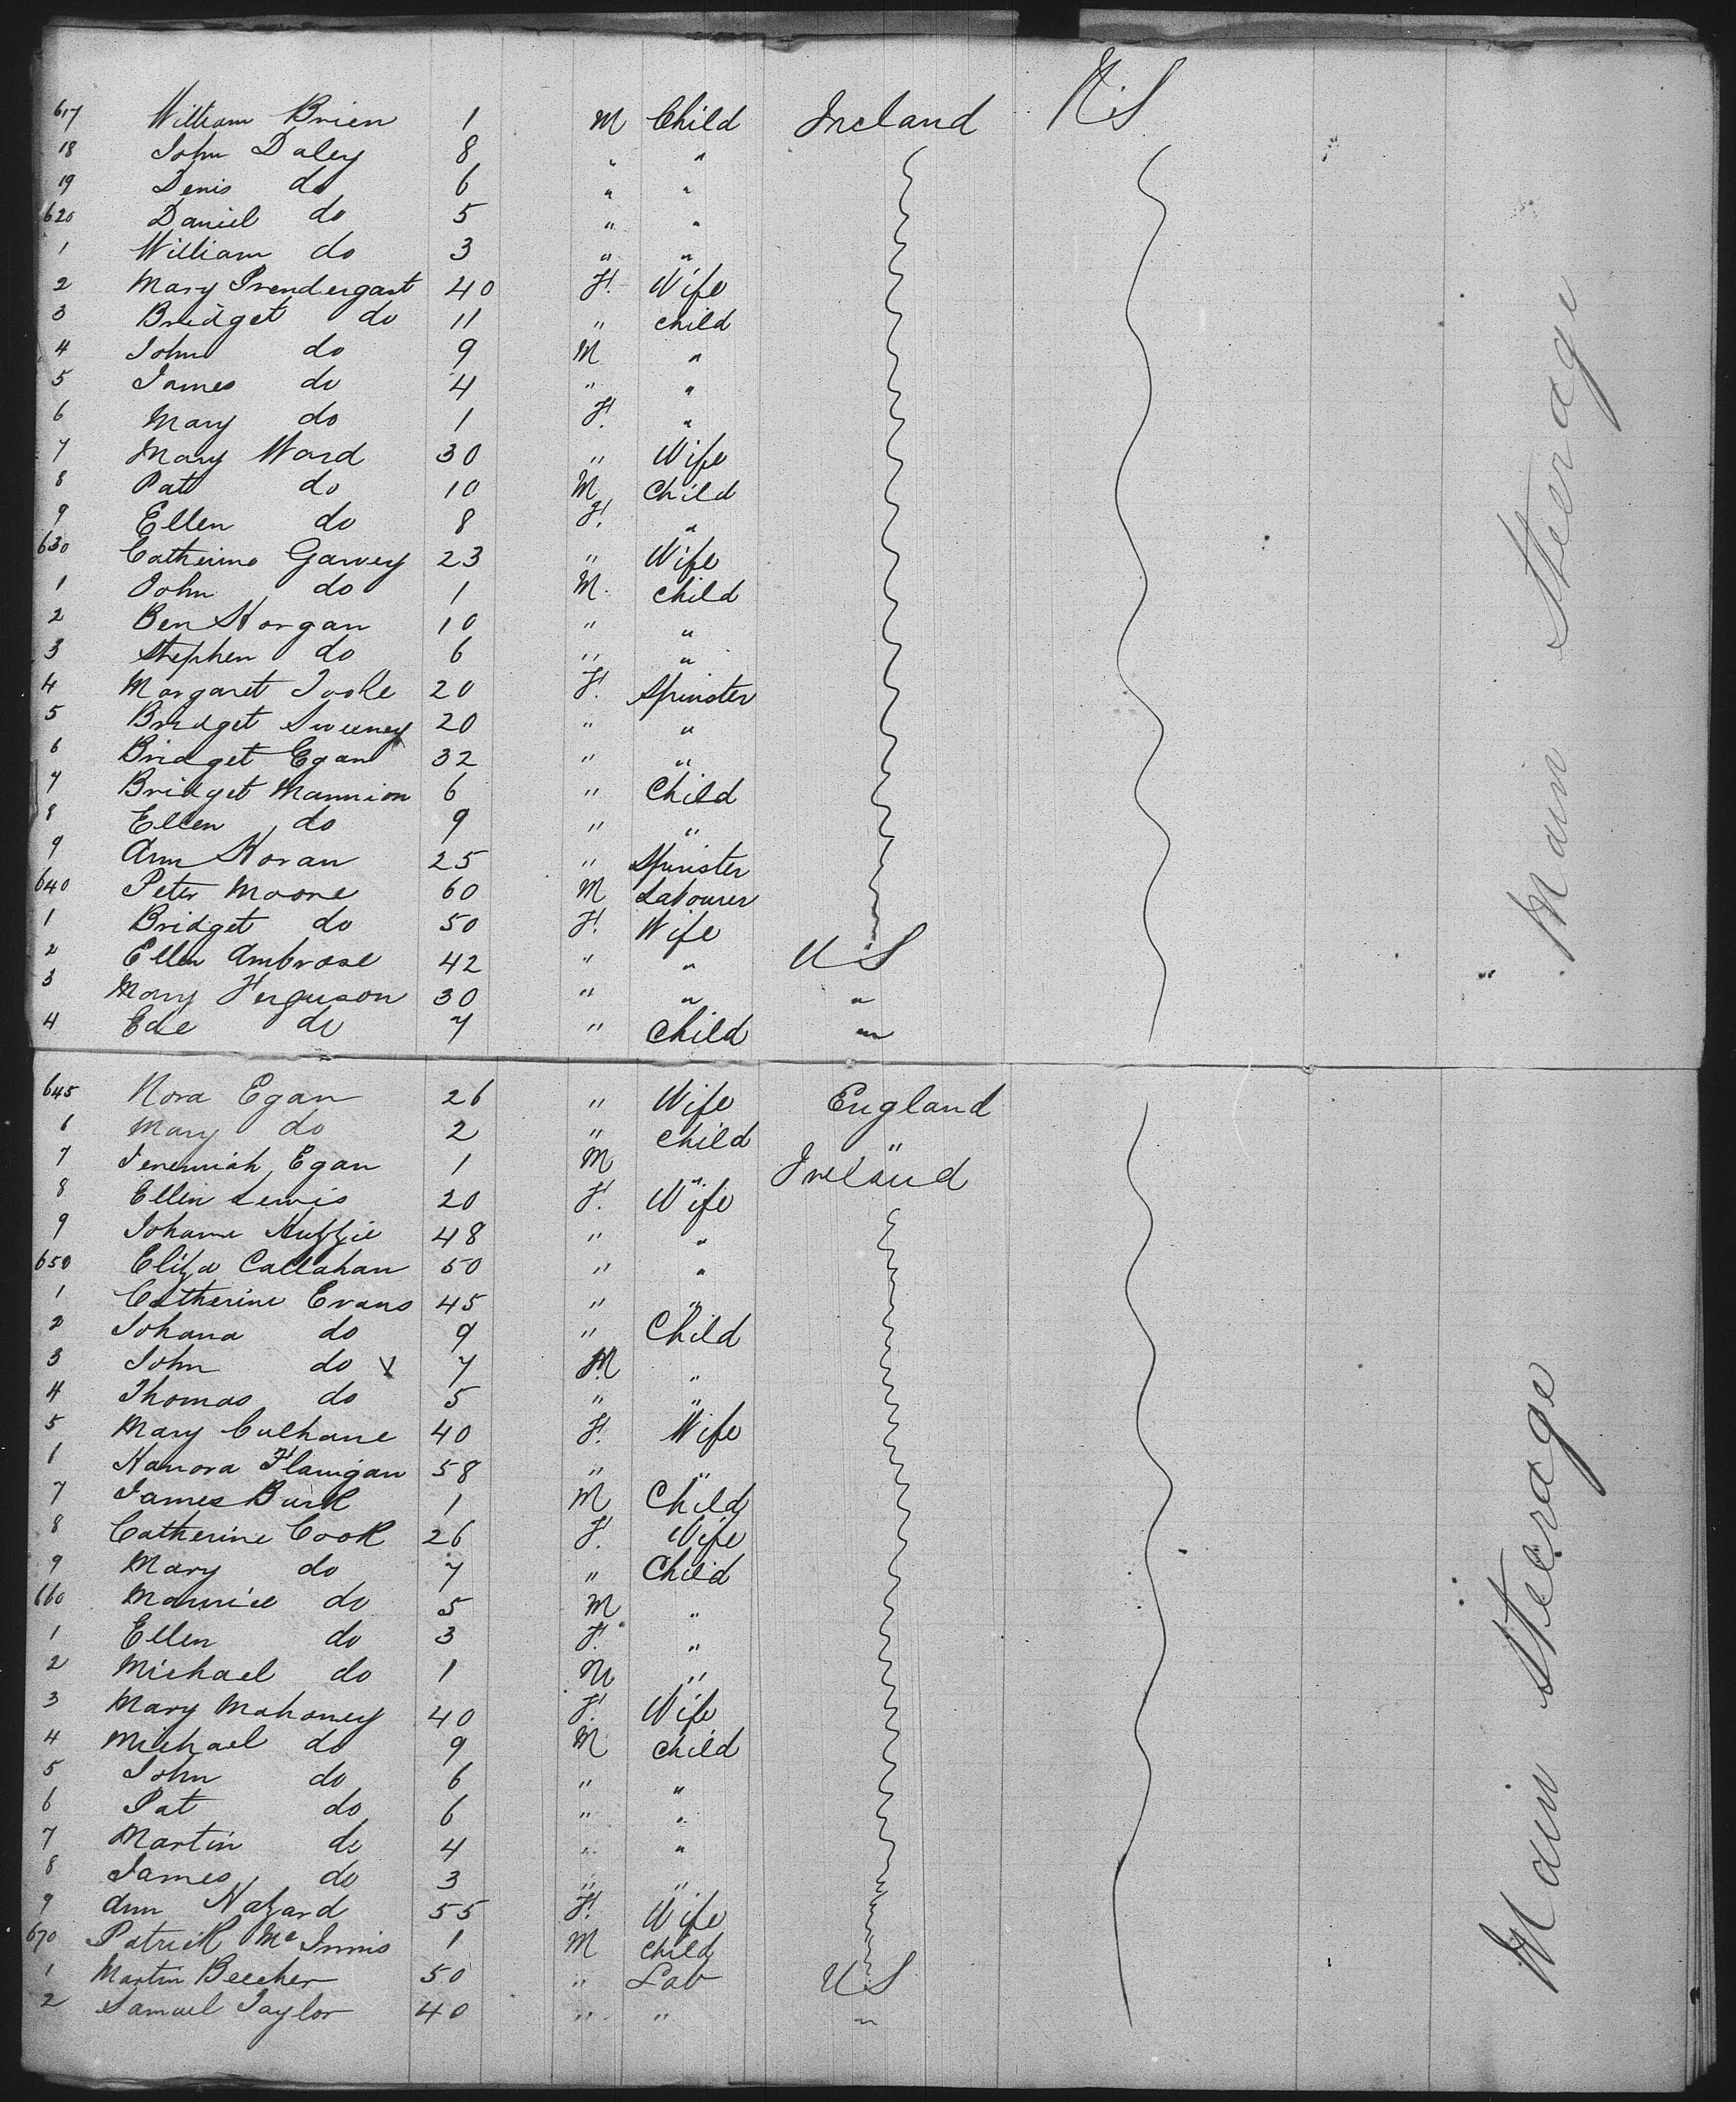 617 William Brien 1 M Child Ireland U.S
18 John Daley 8 " "
19 Denis do 6 " "
620 Daniel do 5 " "
1 William do 3 " "
2 Mary Prendergast 40 F. Wife
3 Bridget do 11 " child
4 John do 9 M "
5 James do 4 " "
6 Mary do 1 F. "
7 Mary Ward 30 " Wife
8 Pat do 10 M. Child
9 Ellen do 8 F. "
630 Catherine Garvey 23 " Wife
1 John do 1 M. child
2 Ben Horgan 10 " "
3 Stephen do 6 " "
4 Margaret Toole 20 F. Spinster
5 Bridget Sweeney 20 " "
6 Bridget Egan 32 " "
7 Bridget Mannion 6 " Child
8 Ellen do 9 " "
9 Ann Horan 25 " Spinster
640 Peter Moore 60 M Labourer
1 Bridget do 50 F. Wife
2 Ellen Ambrose 42 " " U S
3 Mary Ferguson 30 " " "
4 Ede do 7 " Child "
Main Steerage
645 Nora Egan 26 " Wife England
6 Mary do 2 " child "
7 Jeremiah Egan 1 M " Ireland
8 Ellen Lewis 20 F. Wife
9 Johane 48 " "
650 Eliza Callahan 50 " "
1 Catherine Evans 45 " "
2 Johana do 9 " Child
3 John do 7 M "
4 Thomas do 5 " "
5 Mary Culhane 40 F. Wife
6 Hanora Flanigan 58 " "
7 James Burk 1 M Child
8 Catherine Cook 26 F. Wife
9 Mary do 7 " Child
660 Maurice do 5 M "
1 Ellen do 3 F. "
2 Michael do 1 M "
3 Mary Mahoney 40 F. Wife
4 Michael do 9 M child
5 John do 6 " "
6 Pat do 6 " "
7 Martin do 4 " "
8 James do 3 " "
9 Ann Hazard 55 F. Wife
670 Patrick McInnis 1 M child
1 Martin Beecher 50 " Lab U S
2 Samuel Taylor 40 " " "
Main Steerage